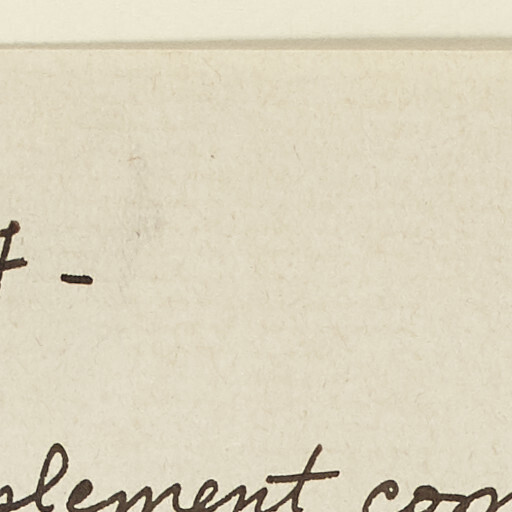 t -
plement com